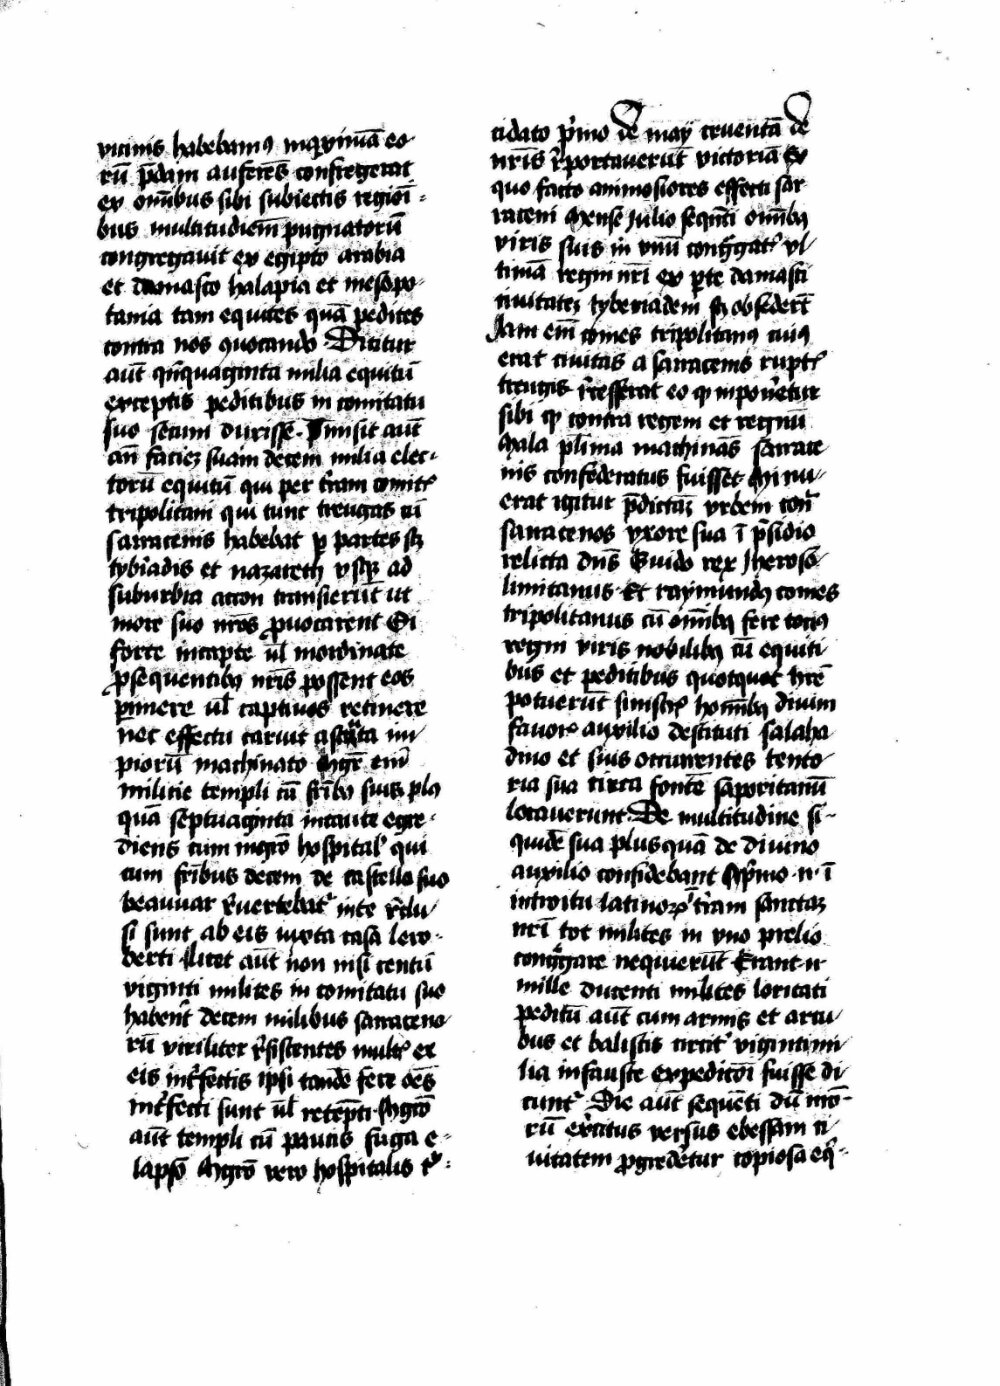 vicinis habebamꝰ maxīmā eo-
rū p̄dam auferēs confregerat
ex om̄ibus sibi subiectis regioī-
bus multitudiēm pugnatorū
congregauit ex egipto arabia
et damasco halapia et mesopo-
tamia tam equites quā pedites
contra nos quocando Dicitur
aūt qn̄quaginta milia equitū
exceptis peditibus in comitatu
suo secum duxisse. misit aūt
an̄ faciēꝫ suam decem milia elec-
torū equitū qui per t̄ram comit᷑
tripolitani qui tunc treugas cū
sarracenis habebat ꝑ partes sꝫ
tyb̄iadis et nazareth vsqꝫ ad
suburbia accon transierūt ut
more suo nr̄os ꝓuocarent Si
forte incapte ul̄ inordinate
ꝓsequentibꝫ nr̄is possent eos
ꝑimere ul̄ captiuos retinere
nec effectu caruit astuta im-
piorū machinato Mgr̄ em̄
milicie templi cū fr̄ibꝫ suis plꝫ
quā septuaginta incaute egre-
diens cum mgr̄o hospital᷑ qui
cum fr̄ibus decem de castello suo
beauuar r̄uertebat᷑ int̄e r̄clu-
si sunt ab eis iuxta casā lero-
berti licet aūt non nisi centū
viginti milites in comitatu suo
haben̄t decem milibus sarraceno-
rū viriliter r̄sistentes mult᷑ ex
eis int̄fectis ipsi tandē fere oēs
int̄fecti sunt ul̄ retēpti. Mgr̄o
aūt templi cū paucis fuga e-
lapso Mgr̄o vero hospitalis t᷑-
cidato p̄mo de may cruentā de
nr̄is r̄portauerūt victoriā Ex
quo facto animosiores effecti sar-
raceni Mense Julio seqn̄ti om̄ibꝫ
viris suis in vnū cong̊gat᷑ vl-
timā regni nr̄i ex ꝑte damasci
ciuitateꝫ tyberiadem sꝫ obsederūt
Jam em̄ comes tripolitanꝰ cuiꝰ
erat ciuitas a sarracenis rupt᷑
treugis r̄cesserat eo ꝙ inpon̄etur
sibi ꝙ contra regem et regnū
Mala pl̄ima machinās sarrace-
nis confederatus fuisset Miniu-
erat igitur p̄dictaꝫ vrbem con̄
sarracenos vxore sua ī p̄sidio
relicta dn̄s Guido rex Jheroso-
limitanus Et raymundꝰ comes
tripolitanus cū om̄ibꝫ fere tociꝰ
regni viris nobilibꝫ cū equiti-
bus et peditibus quotquot hr̄e
potuerūt sinistr᷑ hom̄ibꝫ diuini
fauor᷑ auxilio destituti salaha-
dino et suis occurrentes tento-
ria sua circa fontē saporitanū
locauerunt De multitudine si-
quidē sua plusquā de diuino
auxilio confidebant A p̄mo n̄ ī
introitu latinoꝝ t̄ram sanctaꝫ
nr̄i tot milites in vno prelio
cong̊gare nequierūt Erant n̄
mille ducenti milites loricati
peditū aūt cum armis et arcu-
bus et balistis circit᷑ vigintimi-
lia infauste expedicōi fuisse di-
cunt᷑ Die aūt sequēti dū nr̄o-
rū ex̄citus versus ebessam ci-
uitatem ꝓgrederetur copiosa eq᷑-